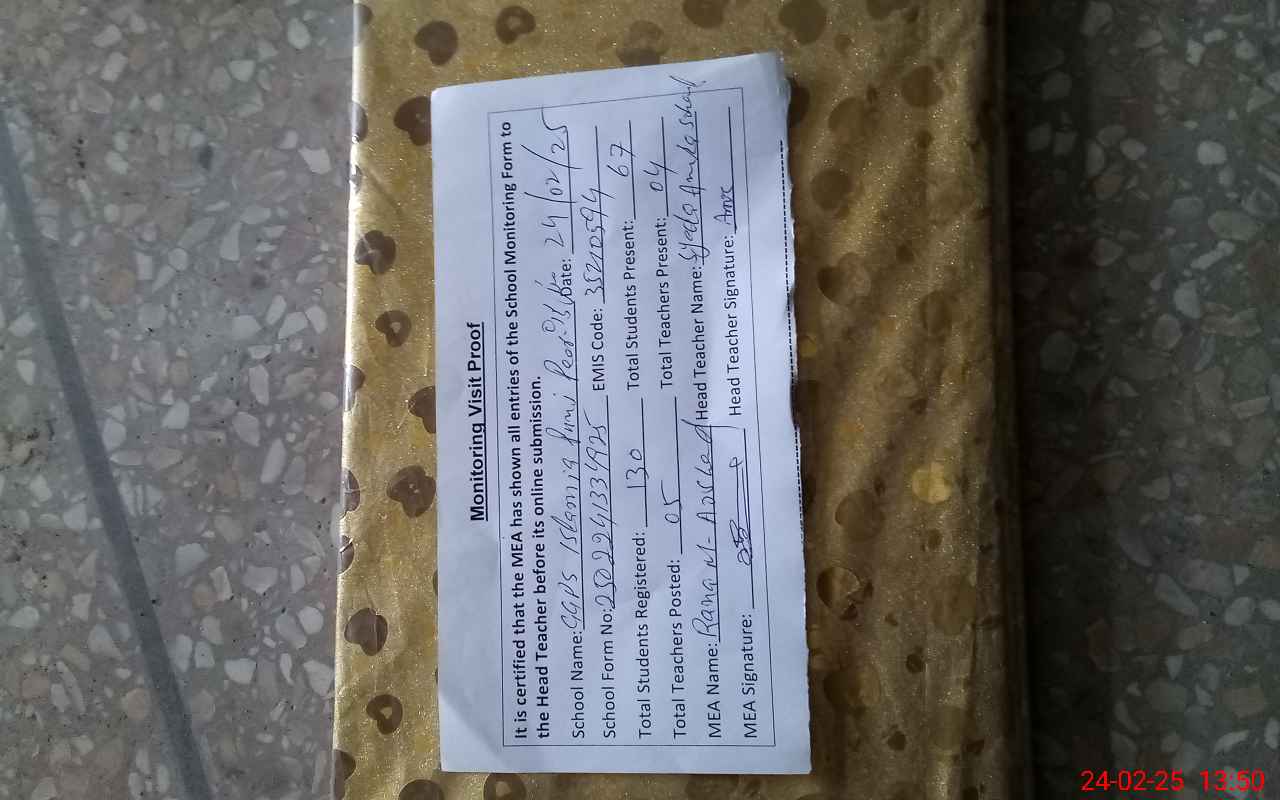 Monitoring Visit Proof
It is certified that the MEA has shown all entries of the School Monitoring Form to
the Head Teacher before its online submission.
School Name: GGPS Islamia Date: 24/02/25
School Form No: EMIS Code: 35210594
Total Students Registered: 130 Total Students Present: 67
Total Teachers Posted: 05 Total Teachers Present: 04
MEA Name: Rana M- Arshad Head Teacher Name:
MEA Signature: Head Teacher Signature:
24-02-25 13:50